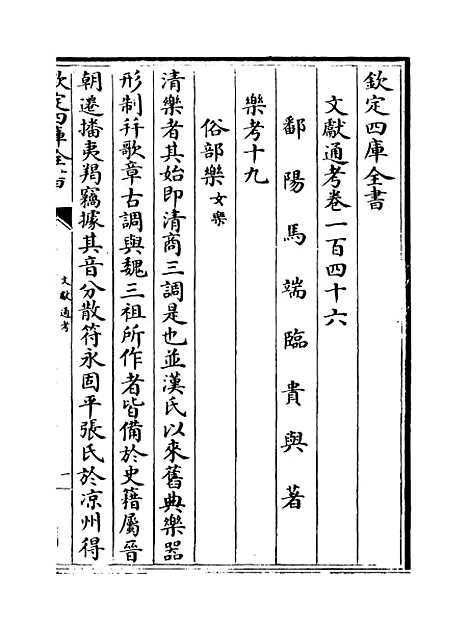 欽定四庫全書
文獻通考卷一百四十六
鄱陽馬端臨貴與著
樂考十九
俗部樂女樂
清樂者其始即清商三調是也並漢氏以來舊典樂器
形制幷歌章古調與魏三祖所作者皆備於史籍屬晉
朝遷播夷羯竊據其音分散符永固平張氏於凉州得
欽定四庫全書
文獻通考
一